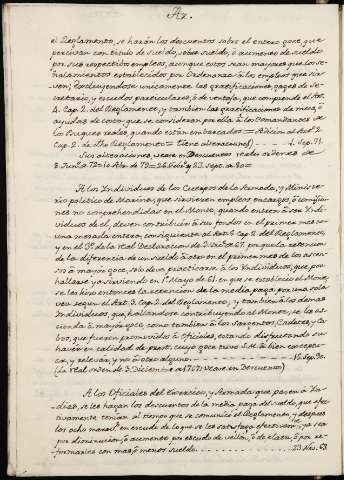 Az.
el Reglamento, se harán los descuentos sobre el entero goce, que
percivan con titulo de sueldo, sobre sueldo, ó aumento de sueldo
por sus respectibos empleos, aunque estos sean mayores que los se-
ñalamientos establecidos por Ordenanza á los empleos que sir-
ven; excluyendose unicamente las gratificaciones, gages de se-
cretario, y escudos particulares, ó de ventaja, que comprende el Art.
4. Cap. 2. del Reglamento, y tambien las gratificaciones de mesa, ó
ayudas de costa, que se consideran por ella á los Comandantes de
los Buques reales, quando están embarcados = Adicion al Art. 2.
Cap. 2. de dho Reglamento = tiene alteraciones
Sus alteraciones, vease en Descuentos reales ordenes de
8. Jun.o de 72 = 10 Abr. de 72 = 23 Sept. de 80 =
A los Individuos de los Cuerpos de la Armada, y Minis-
terio politico de Marina, que sirvieren empleos, encargos, ó comi
nes no comprehendidos en el Monte, quando entren á ser Indi-
viduos de el, deven contribuir á sus fondos en el primer mes co
una mesada entera, consiguiente al Art. 5. Cap. 2. del Reglamento,
y en el 3.º de la real Declaracion de 3. Dic.e de 67. pues la retencion
de la diferencia de un sueldo á otro en el primer mes de los ascen-
sos á mayor goce, solo deve practicarse á los Individuos, que por
hallarse ya sirviendo en 1.º Mayo de 61. en que se estableció el Monte,
se les hizo entonces la retencion de la media paga, por una sola
vez segun el Art. 3. Cap. 2. del Reglamento; y tambien á los demas
Individuos, que, hallandose contribuyendo al Monte, se les as-
cienda á mayor goce, como tambien á los Sargentos, Cadetes, y Ca-
bos, que fueren promovidos á Oficiales, estando disfrutando sus
haveres en calidad de prest, cuyo goce tuvo S.M. á bien excepte-
car, y relevar, y no á otro alguno
(La real orden de 3. Diciembre de 1767. vease en Descuento)
A los Oficiales del Exercito, y Armada que pasen á In-
dias, se les hagan los descuentos de la media paga del sueldo, que efec-
tivamente tenian al tiempo que se comunicó el Reglamento, y despues
los ocho marav.s en escudo de lo que se les satisfaga efectivam.te, ya sea
por disminucion, ó aumento por escudo de vellon, ó de plata, ó por re-
formarlos con mas, ó menos sueldo